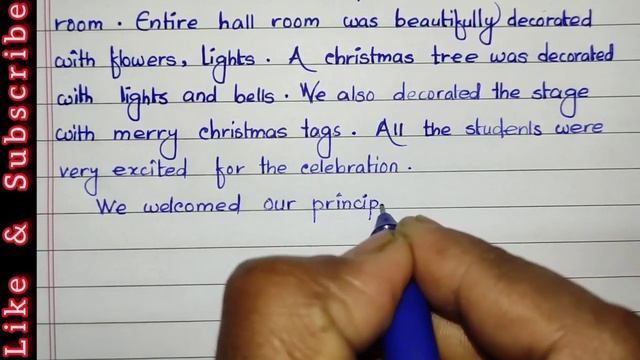 room. Entire hall room was beautifully decorated
with flowers, lights. A christmas tree was decorated
with lights and bells. We also decorated the stage
with merry christmas tags. All the students were
very excited for the celebration.
We welcomed our princip
Like & Subscribe